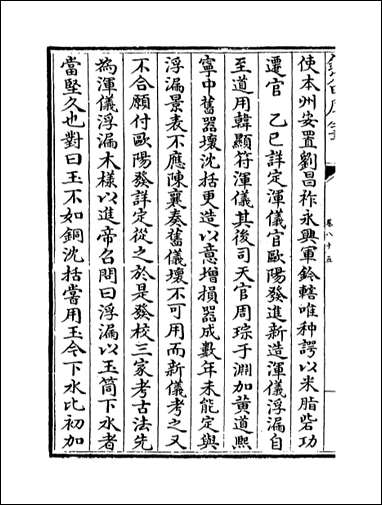 使本州安置劉昌祚永興軍鈐轄唯种諤以米脂砦功
遷官　乙巳詳定渾儀官歐陽發進新造渾儀浮漏自
至道用韓顯符渾儀其後司天官周琮于淵加黄道熙
寧中舊器壞沈括更造以意增損器成數年未能定與
浮漏景表不應陳襄奏舊儀壞不可用而新儀考之又
不合願付歐陽發詳定從之於是發校三家考古法先
為渾儀浮漏木樣以進帝召問曰浮漏以玉筒下水者
當堅久也對曰玉不如銅沈括嘗用玉今下水比初加
卷八十五